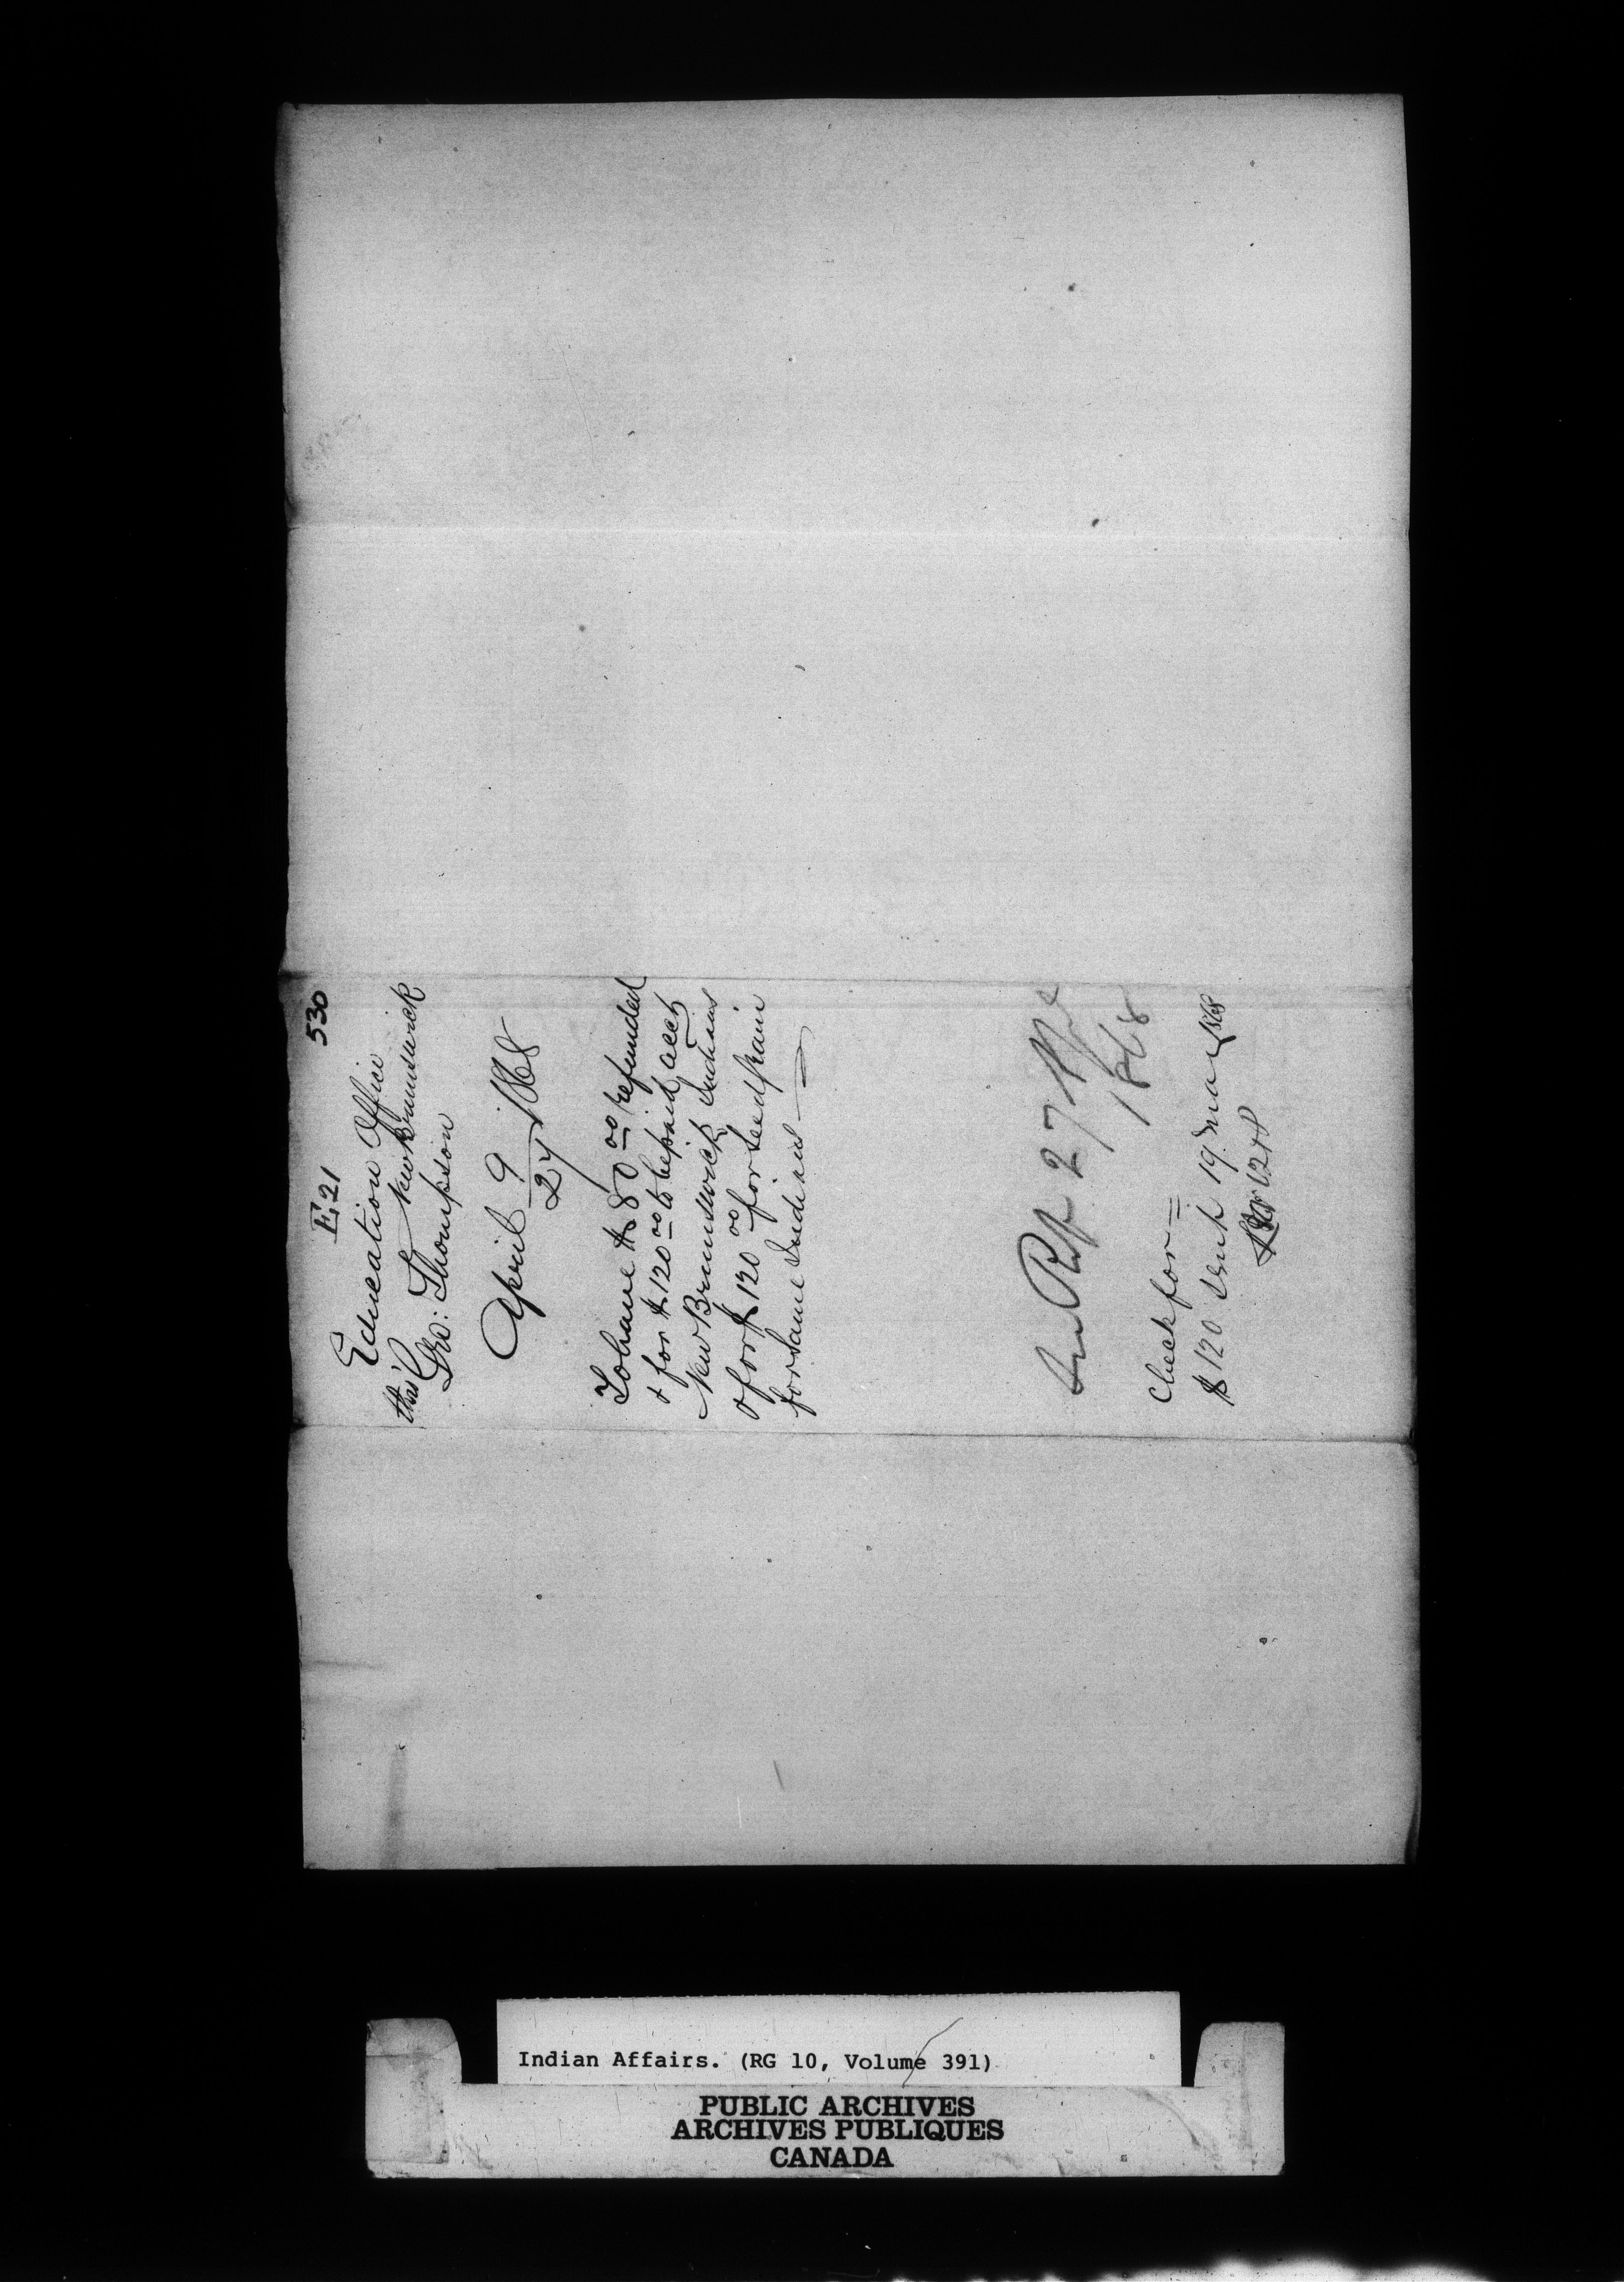 530
E. 21
Education Office
New Brunswick
thro'
Geo: Thompson
April 9/27 1868
To have $80 00 refunded
& for $120 00 to be paid acct
New Brunswick Indians
& for $120 00 for seed grain
for same Indians
27
1868
Check for
$120 sent 19 May 1868
Indian Affairs. (RG 10, Volume 391)
PUBLIC ARCHIVES
ARCHIVES PUBLIQUES
CANADA